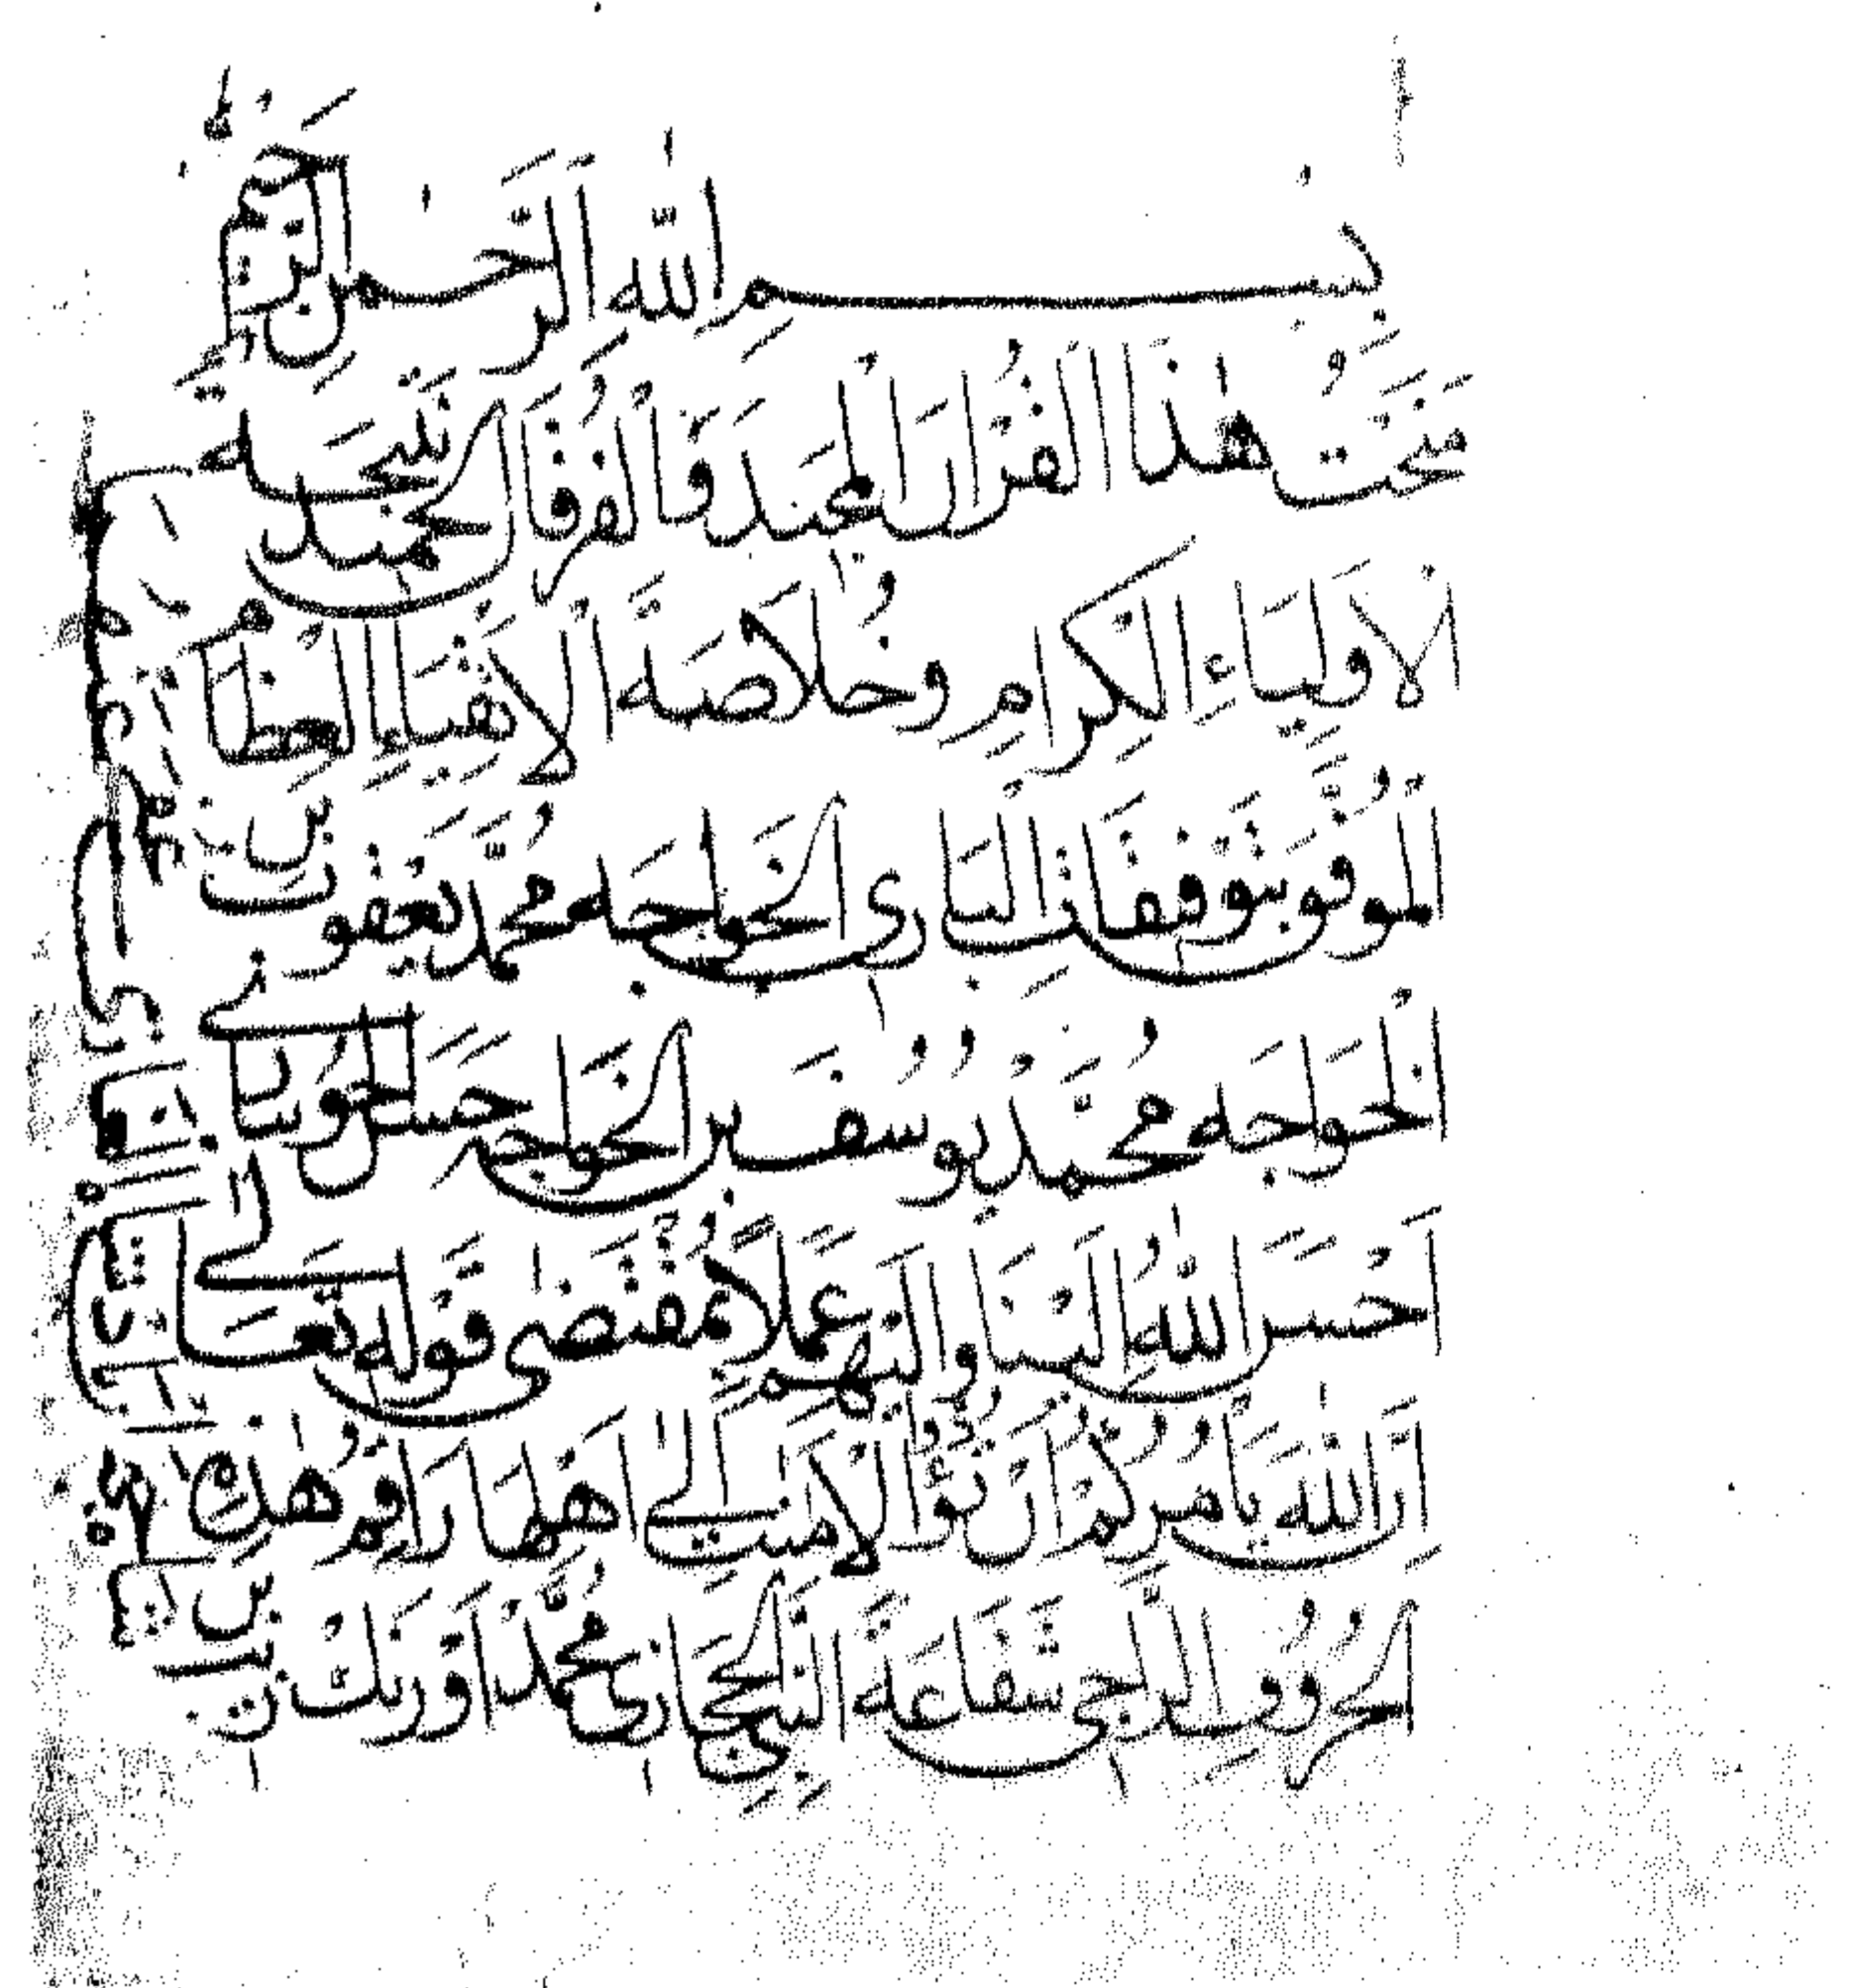 بِسْمِ اللّٰهِ الرَّحْمٰنِ الرَّحِيْمِ
مَنَحْتُ هٰذَا الْقُرْاٰنَ الْمَجِيْدَ وَالْفُرْقَانَ الْحَمِيْدَ نَتِيْجَةَ
الْاَوْلِيَاءِ الْكِرَامِ وَخُلَاصَةَ الْاَتْقِيَاءِ الْعِظَامِ
الْمُوَفَّقَ بِتَوْفِيْقَاتِ الْبَارِى الخواجه مُحَمَّد يَعْقُوْب بن
الْخَوَاجَه مُحَمَّد يُوْسُف بن الْخَوَاجَه حَسَن
اَحْسَنَ اللّٰهُ اِلَيْنَا وَاِلَيْهِمْ عَمَلًا بِمُقْتَضٰى قَوْلِهِ تَعَالٰى
اِنَّ اللّٰهَ يَاْمُرُكُمْ اَنْ تُؤَدُّوا الْاَمٰنٰتِ اِلٰى اَهْلِهَا رَاقِمُ هٰذِهِ
الْحُرُوْفِ الرَّاجِى شَفَاعَةَ النَّبِىِّ الْحِجَازِى مُحَمَّد اَوْرَنْك زيب